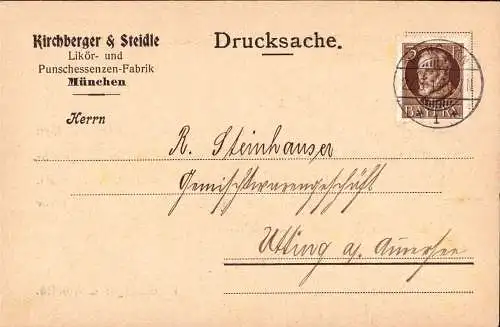 Kirchberger & Steidle
Likör- und
Punschessenzen-Fabrik
München
Drucksache.
3
BAYERN
Herrn
R. Steinhauser
Gemischtwarengeschäft
Utting a/ Ammersee